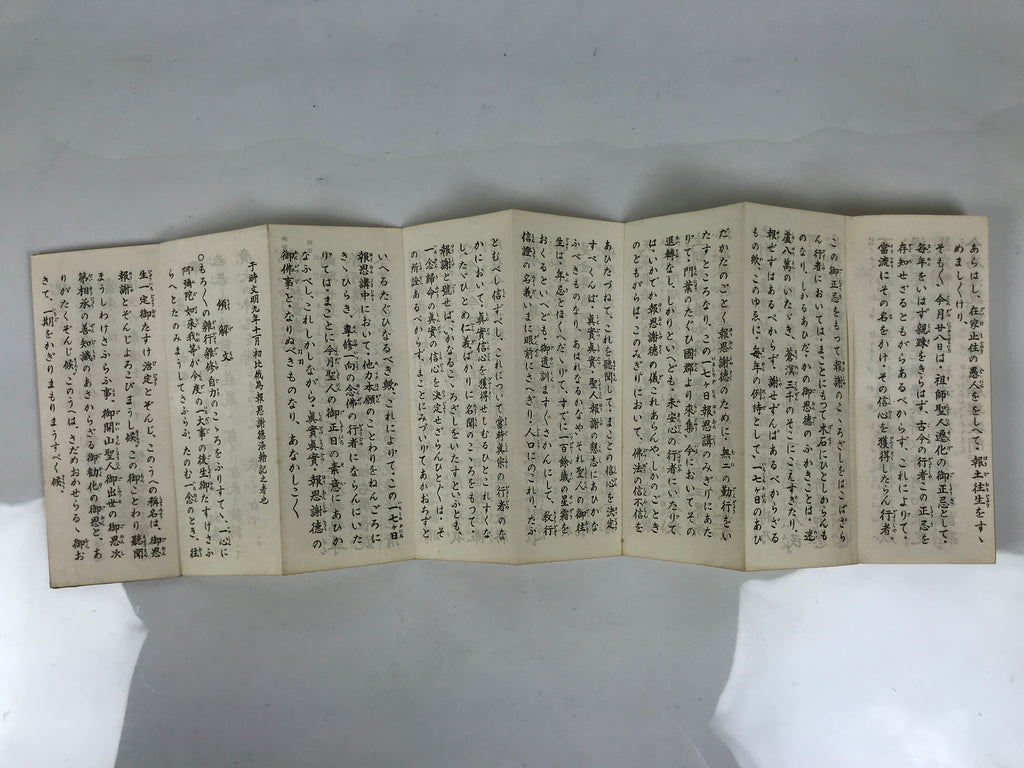 あらはし、在家止住の惡人ををしへて・報土往生をすゝ
めましく／＼けり、
そもく／＼今月廿八日は・祖師聖人遷化の御正忌として・
毎年をいはず親疎をきらはず、古今の行者この正忌を
存知せざるともがらあるべからず、これによりて・
當流にその名をかけ・その信心を獲得したらん行者・
この御正忌をもつて報謝のこゝろざしをはこばざら
ん行者においては・まことにもつて木石にひとしからんも
のなり、しかるあひだ・かの御恩德のふかきことは・迷
盧八萬のいたゞき、蒼溟三千のそこにこえすぎたり、
報ぜずはあるべからず・謝せずんばあるべからざる
もの歟、このゆゑに・毎年の例時として・一七ヶ日のあひ
だかたのごとく報恩謝德のために・無二の勤行をい
たすところなり、この一七ヶ日報恩講のみぎりにあた
りて・門葉のたぐひ國郡より來集・今においてその
退轉なし、しかりといへども・未安心の行者にいたりて
は・いかでか報恩謝德の儀これあらんや、しかのごとき
のともがらは・このみぎりにおいて、佛法の信不信を
あひたづねて、これを聽聞して・まことの信心を決定
すべくんば、眞實眞實・聖人報謝の懇志にあひかな
ふべきものなり、あはれなるかなや・それ聖人の御往
生は・年忌とほくへだゝりて、すでに一百餘歲の星霜を
おくるといへども・御遺訓ますく／＼さかんにして、敎行
信證の名義いまに眼前にさへぎり・人口にのこれり、たふ
とむべし信ずべし、これについて當時眞宗の行者のな
かにおいて・眞實信心を獲得せしむるひとこれすくな
し、たゞひとめに仁義ばかりに名聞のこゝろをもつて・
報謝と號せば・いかなるこゝろざしをいたすといふとも、
一念歸命の眞實の信心を決定せざらんひとく／＼は・そ
の所詮あるべからず、まことに水にいりてあかおちずと
いへるたぐひなるべき歟、これによりて・この一七ヶ日
報恩講中において・他力本願のことわりをねんごろに
きゝひらき、專修一向の念佛の行者にならんにいた
りては・まことに今月聖人の御正日の素意にあひか
なふべし、これしかしながら・眞實眞實・報恩謝德の
御佛事となりぬべきものなり、あなかしこく／＼、
于時文明九年十一月初比俄爲報恩謝德染翰記之者也
領解文
○もろく／＼の雜行雜修自力のこゝろをふりすてゝ、一心に
阿彌陀如來我等が今度の一大事の後生御たすけさふ
らへとたのみまうして さふらふ、たのむ一念のとき、往
生一定御たすけ治定とぞんじ、このうへの稱名は、御恩
報謝とぞんじよろこびまうし候、この御ことわり聽聞
まうしわけさふらふ事、御開山聖人御出世の御恩、次
第相承の善知識のあさからざる御勸化の御恩と、あ
りがたくぞんじ候、このうへは、さだめおかせらるゝ御お
きて、一期をかぎりまもりまうすべく候、